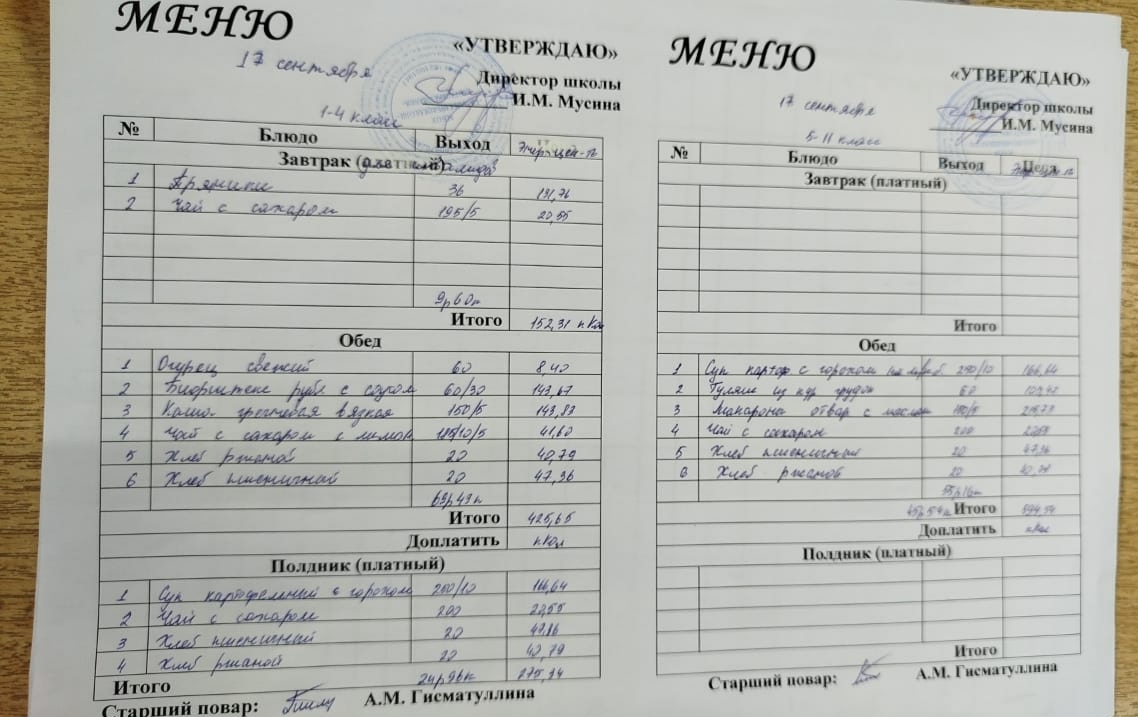 МЕНЮ
17 сентября
«УТВЕРЖДАЮ»
Директор школы
И.М. Мусина
1-4 класс
№ Блюдо Выход
Завтрак (платный)
1 Пряники 36 131,76
2 Чай с сахаром 195/5 20,55
9р60к
Итого 152,31 кКал
Обед
1 Огурец свежий 60 8,40
2 Бифштекс руб. с соусом 60/30 143,67
3 Каша гречневая вязкая 150/5 143,83
4 Чай с сахаром с лимон 185/10/5 41,60
5 Хлеб ржаной 20 40,79
6 Хлеб пшеничный 20 47,36
69р49к
Итого 425,65
Доплатить кКал
Полдник (платный)
1 Суп картофельный с горохом 250/10 166,64
2 Чай с сахаром 200 20,55
3 Хлеб пшеничный 20
4 Хлеб ржаной 20 40,79
Итого 24р96к
Старший повар: А.М. Гисматуллина
МЕНЮ
17 сентября
«УТВЕРЖДАЮ»
Директор школы
И.М. Мусина
5-11 класс
№ Блюдо Выход Цена
Завтрак (платный)
Итого
Обед
1 Суп картоф с горохом 250/10 166,64
2 Гуляш из кур грудок 60
3 Макароны отвар с маслом
4 Чай с сахаром 200
5 Хлеб пшеничный 20 47,36
6 Хлеб ржаной 20
55р16к
Итого
Доплатить кКал
Полдник (платный)
Итого
Старший повар: А.М. Гисматуллина